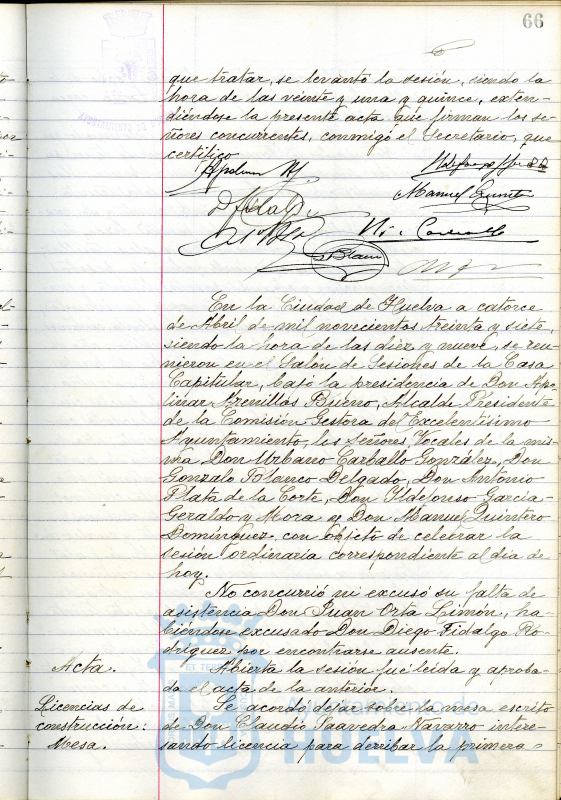 66
que tratar, se levantó la sesión, siendo la
hora de las veinte y una y quince, exten-
diéndose la presente acta que firman los se-
ñores concurrentes, conmigo el Secretario, que
certifico
Manuel Quintero
En la Ciudad de Huelva a catorce
de Abril de mil novecientos treinta y siete,
siendo la hora de las diez y nueve, se reu-
nieron en el Salón de Sesiones de la Casa
Capitular, bajo la presidencia de Don Apo-
linar Arenillas Bueno, Alcalde Presidente
de la Comisión Gestora del Excelentísimo
Ayuntamiento, los señores Vocales de la mis-
ma Don Urbano Carballo González, Don
Gonzalo Polanco Delgado, Don Antonio
Plata de la Corte, Don Ildefonso García-
Geraldo y Mora y Don Manuel Quintero
Domínguez, con objeto de celebrar la
sesión ordinaria correspondiente al día de
hoy.
No concurrió ni excusó su falta de
asistencia Don Juan Orta Limón, ha-
biéndose excusado Don Diego Fidalgo Ro-
dríguez por encontrarse ausente.
Acta. Abierta la sesión fué leída y aproba-
da el acta de la anterior.
Licencias de Se acordó dejar sobre la mesa escrito
construcción: de Don Claudio Saavedra Navarro intere-
Mesa. sando licencia para derribar la primera
HUELVA